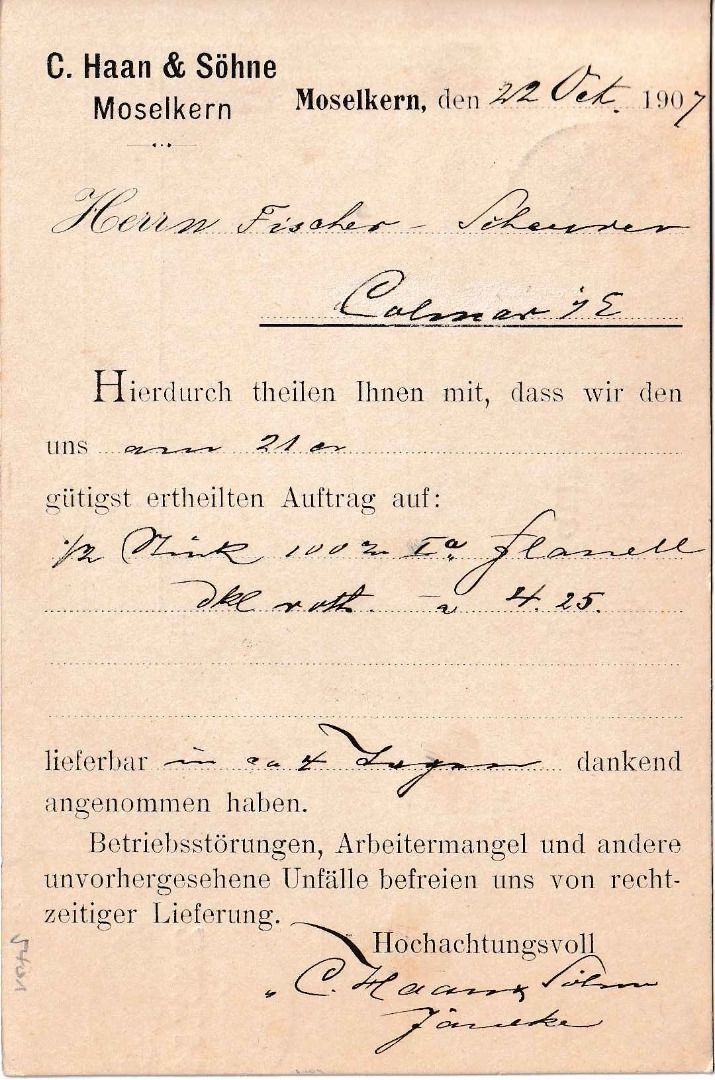 C. Haan & Söhne
Moselkern
Moselkern, den 22 Oct. 1907
Herrn Fischer - Scheurer
Colmar i/E
Hierdurch theilen Ihnen mit, dass wir den
uns am 21 cr
gütigst ertheilten Auftrag auf:
1/2 Stück 100 Ia Flanell
dkl roth. a 4.25.
lieferbar in ca 4 Tagen dankend
angenommen haben.
Betriebsstörungen, Arbeitermangel und andere
unvorhergesehene Unfälle befreien uns von recht-
zeitiger Lieferung.
Hochachtungsvoll
C. Haan & Söhne